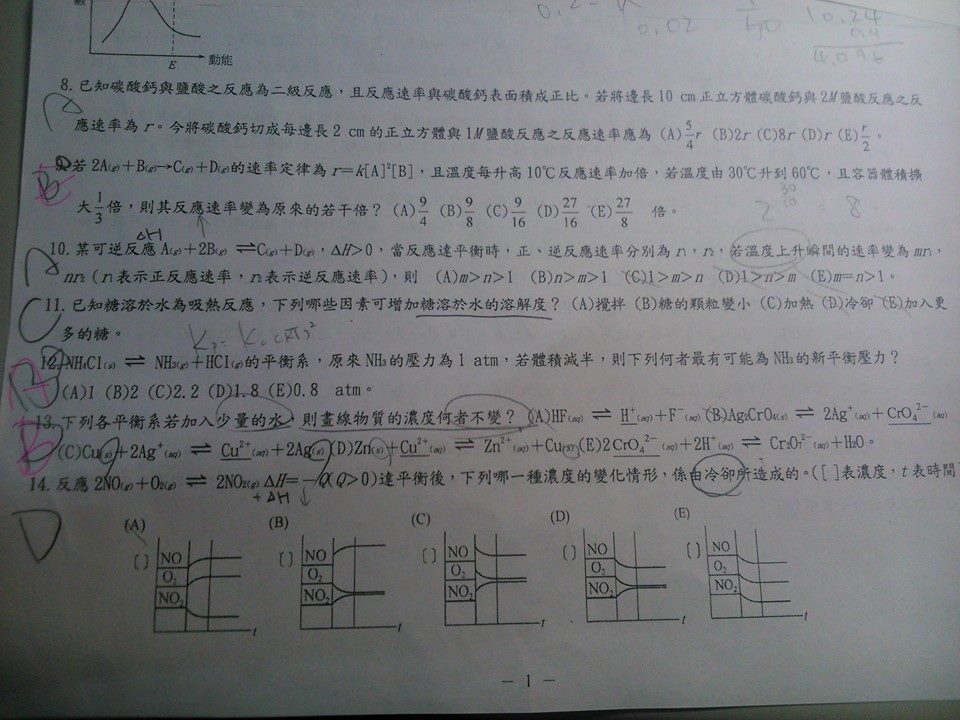 數
E
動能
0.02
10.24
0.4
4.096
8. 已知碳酸鈣與鹽酸之反應為二級反應，且反應速率與碳酸鈣表面積成正比。若將邊長 10 cm 正立方體碳酸鈣與 2M 鹽酸反應之反
應速率為 r。今將碳酸鈣切成每邊長 2 cm 的正立方體與 1M 鹽酸反應之反應速率應為 (A) 5/4 r (B)2r (C)8r (D)r (E) r/2 。
9. 若 2A(g)+B(g)→C(g)+D(g)的速率定律為 r=k[A]²[B]，且溫度每升高 10℃反應速率加倍，若溫度由 30℃升到 60℃，且容器體積擴
大 1/3 倍，則其反應速率變為原來的若干倍？ (A) 9/4 (B) 9/8 (C) 9/16 (D) 27/16 (E) 27/8 倍。
8
ΔH
10. 某可逆反應 A(g)+2B(g) ⇌ C(g)+D(g)，ΔH>0，當反應達平衡時，正、逆反應速率分別為 r₁, r₂，若溫度上升瞬間的速率變為 mr₁,
nr₂（r₁表示正反應速率，r₂表示逆反應速率），則 (A)m>n>1 (B)n>m>1 (C)1>m>n (D)1>n>m (E)m=n>1。
11. 已知糖溶於水為吸熱反應，下列哪些因素可增加糖溶於水的溶解度？ (A)攪拌 (B)糖的顆粒變小 (C)加熱 (D)冷卻 (E)加入更
多的糖。
12. NH₄Cl(s) ⇌ NH₃(g)+HCl(g)的平衡系，原來 NH₃的壓力為 1 atm，若體積減半，則下列何者最有可能為 NH₃的新平衡壓力？
(A)1 (B)2 (C)2.2 (D)1.8 (E)0.8 atm。
13. 下列各平衡系若加入少量的水，則畫線物質的濃度何者不變？ (A)HF(aq) ⇌ H⁺(aq)+F⁻(aq) (B)Ag₂CrO₄(s) ⇌ 2Ag⁺(aq)+CrO₄²⁻(aq)
B
(C)Cu(s)+2Ag⁺(aq) ⇌ Cu²⁺(aq)+2Ag(s) (D)Zn(s)+Cu²⁺(aq) ⇌ Zn²⁺(aq)+Cu(s) (E)2CrO₄²⁻(aq)+2H⁺(aq) ⇌ Cr₂O₇²⁻(aq)+H₂O。
14. 反應 2NO(g)+O₂(g) ⇌ 2NO₂(g) ΔH=-Q(Q>0)達平衡後，下列哪一種濃度的變化情形，係由冷卻所造成的。([ ]表濃度，t表時間
+ΔH
D
(A) (B) (C) (D) (E)
[ ] NO O₂ NO₂ t
[ ] NO O₂ NO₂ t
[ ] NO O₂ NO₂ t
[ ] NO O₂ NO₂ t
[ ] NO O₂ NO₂ t
－ 1 －